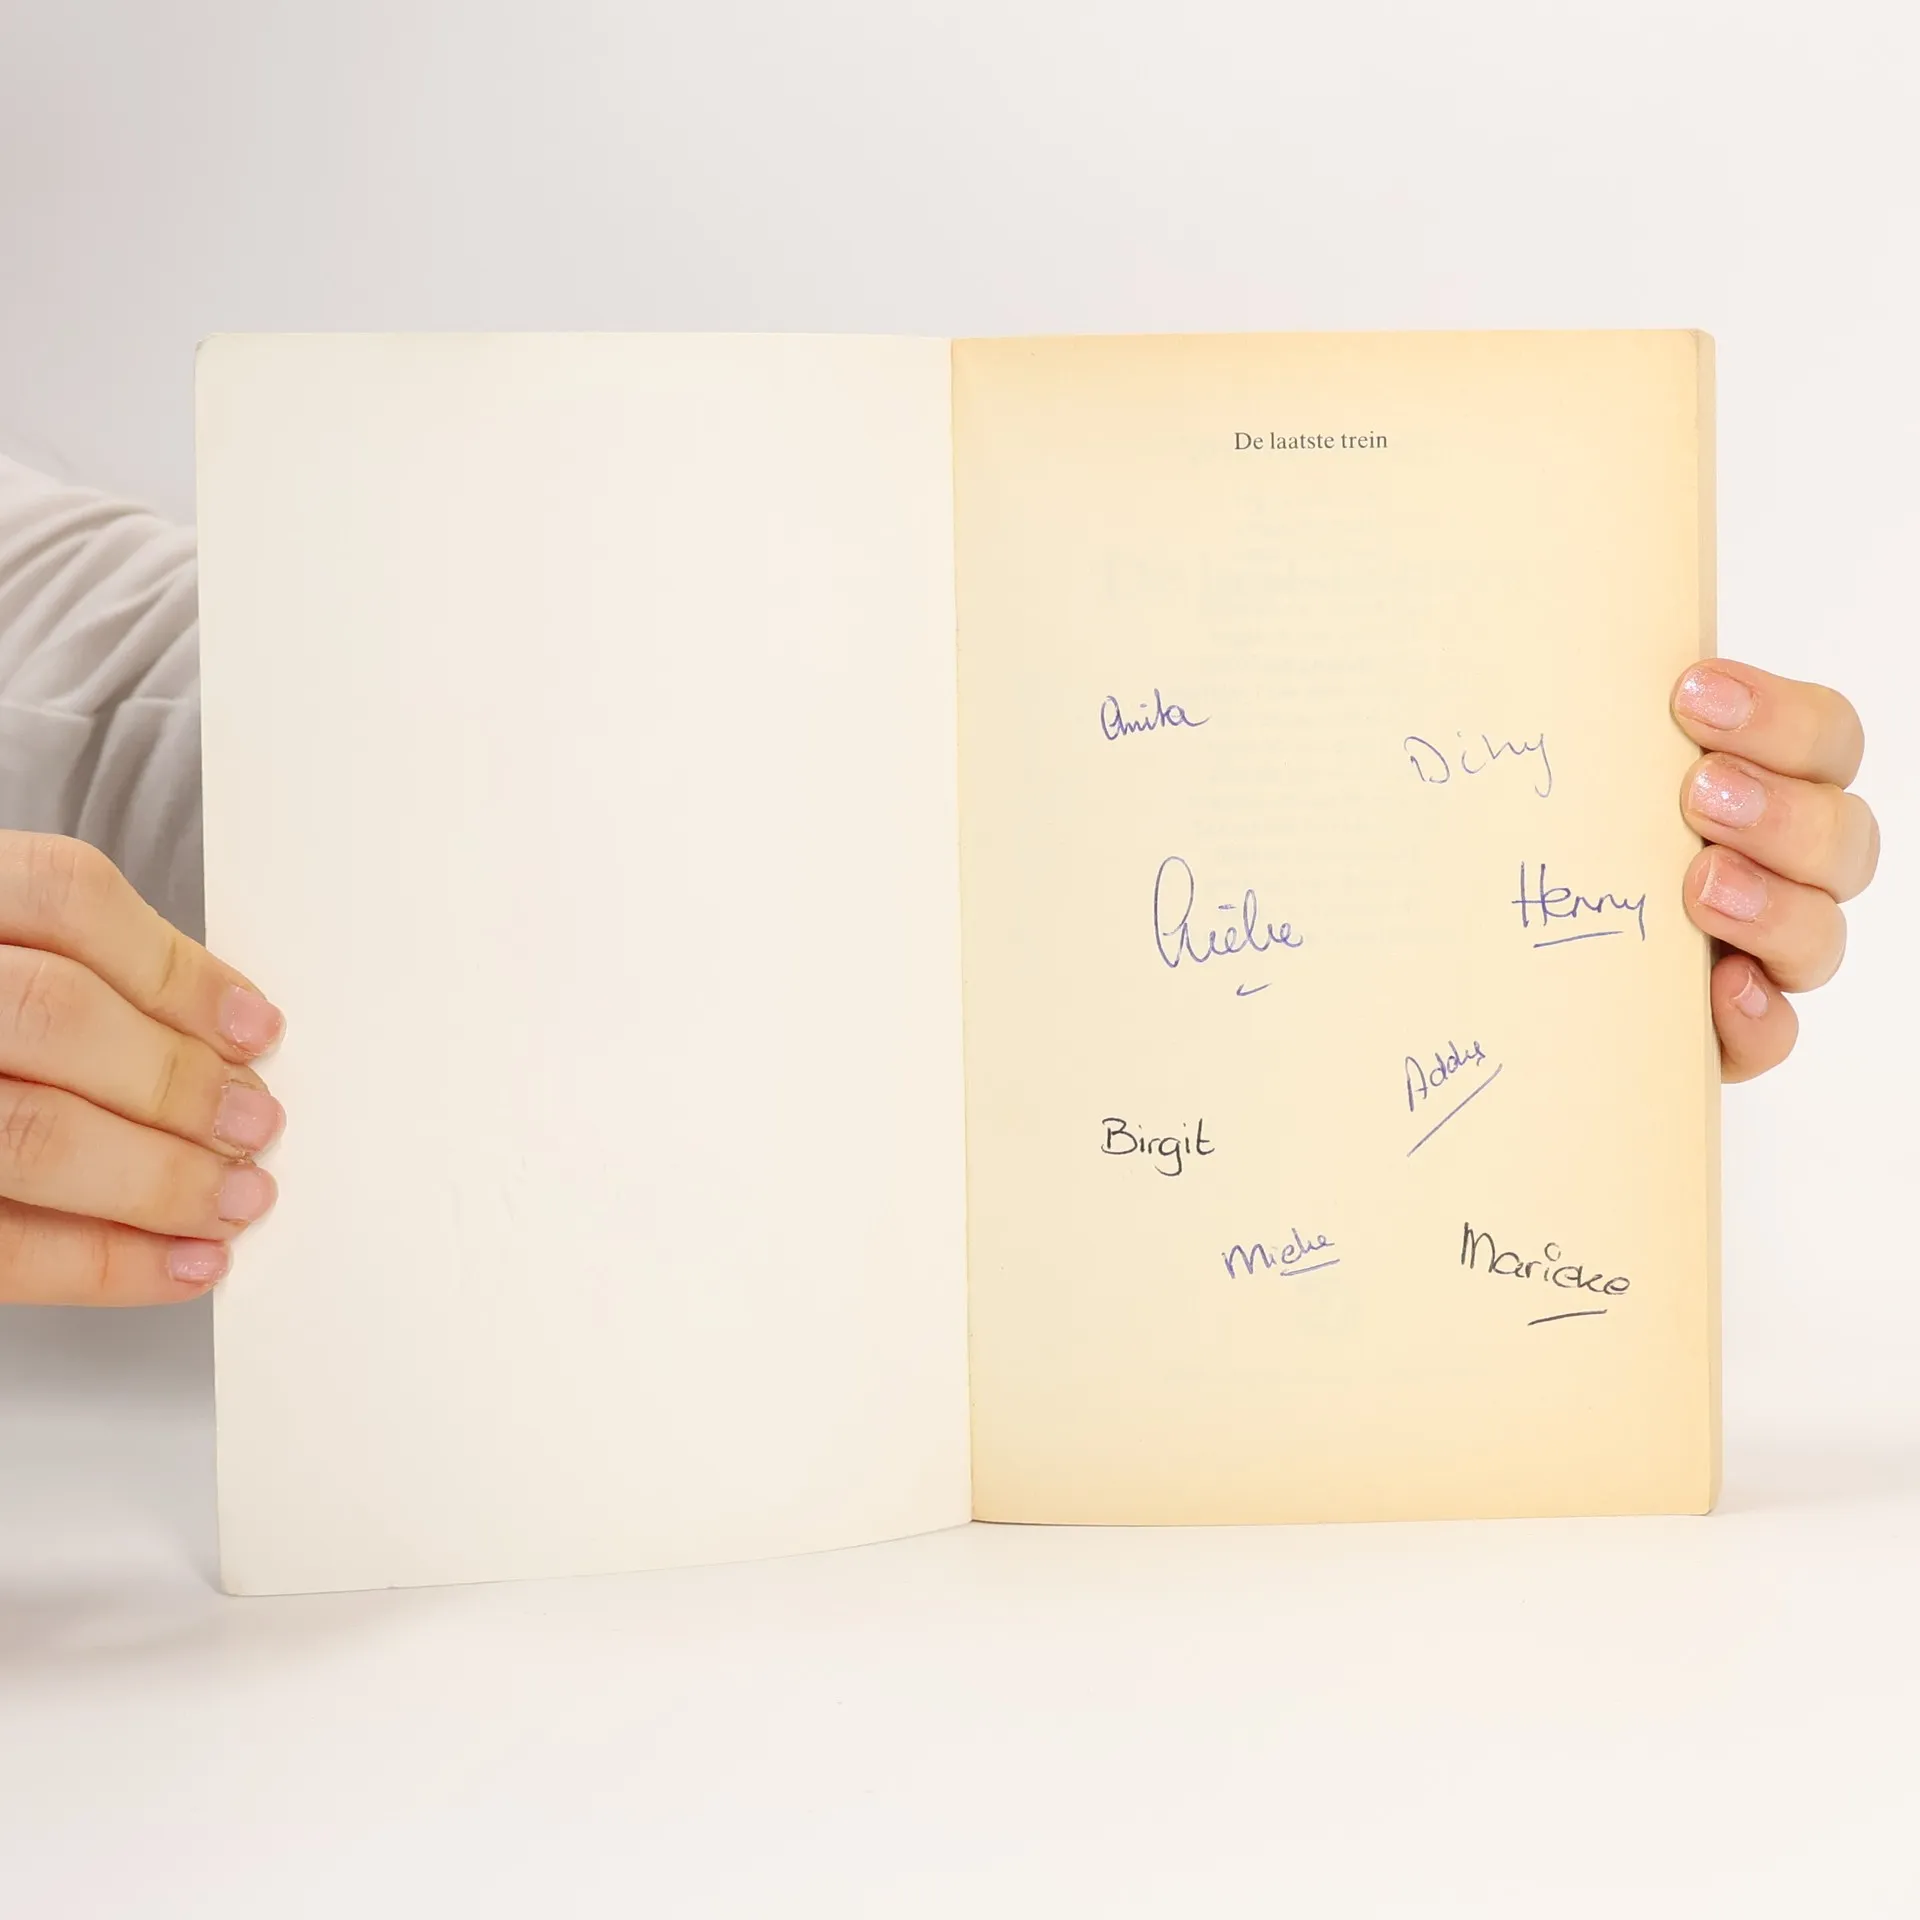 De laatste trein
Anita
Diny
Henny
Addy
Birgit
Mieke
Marieke